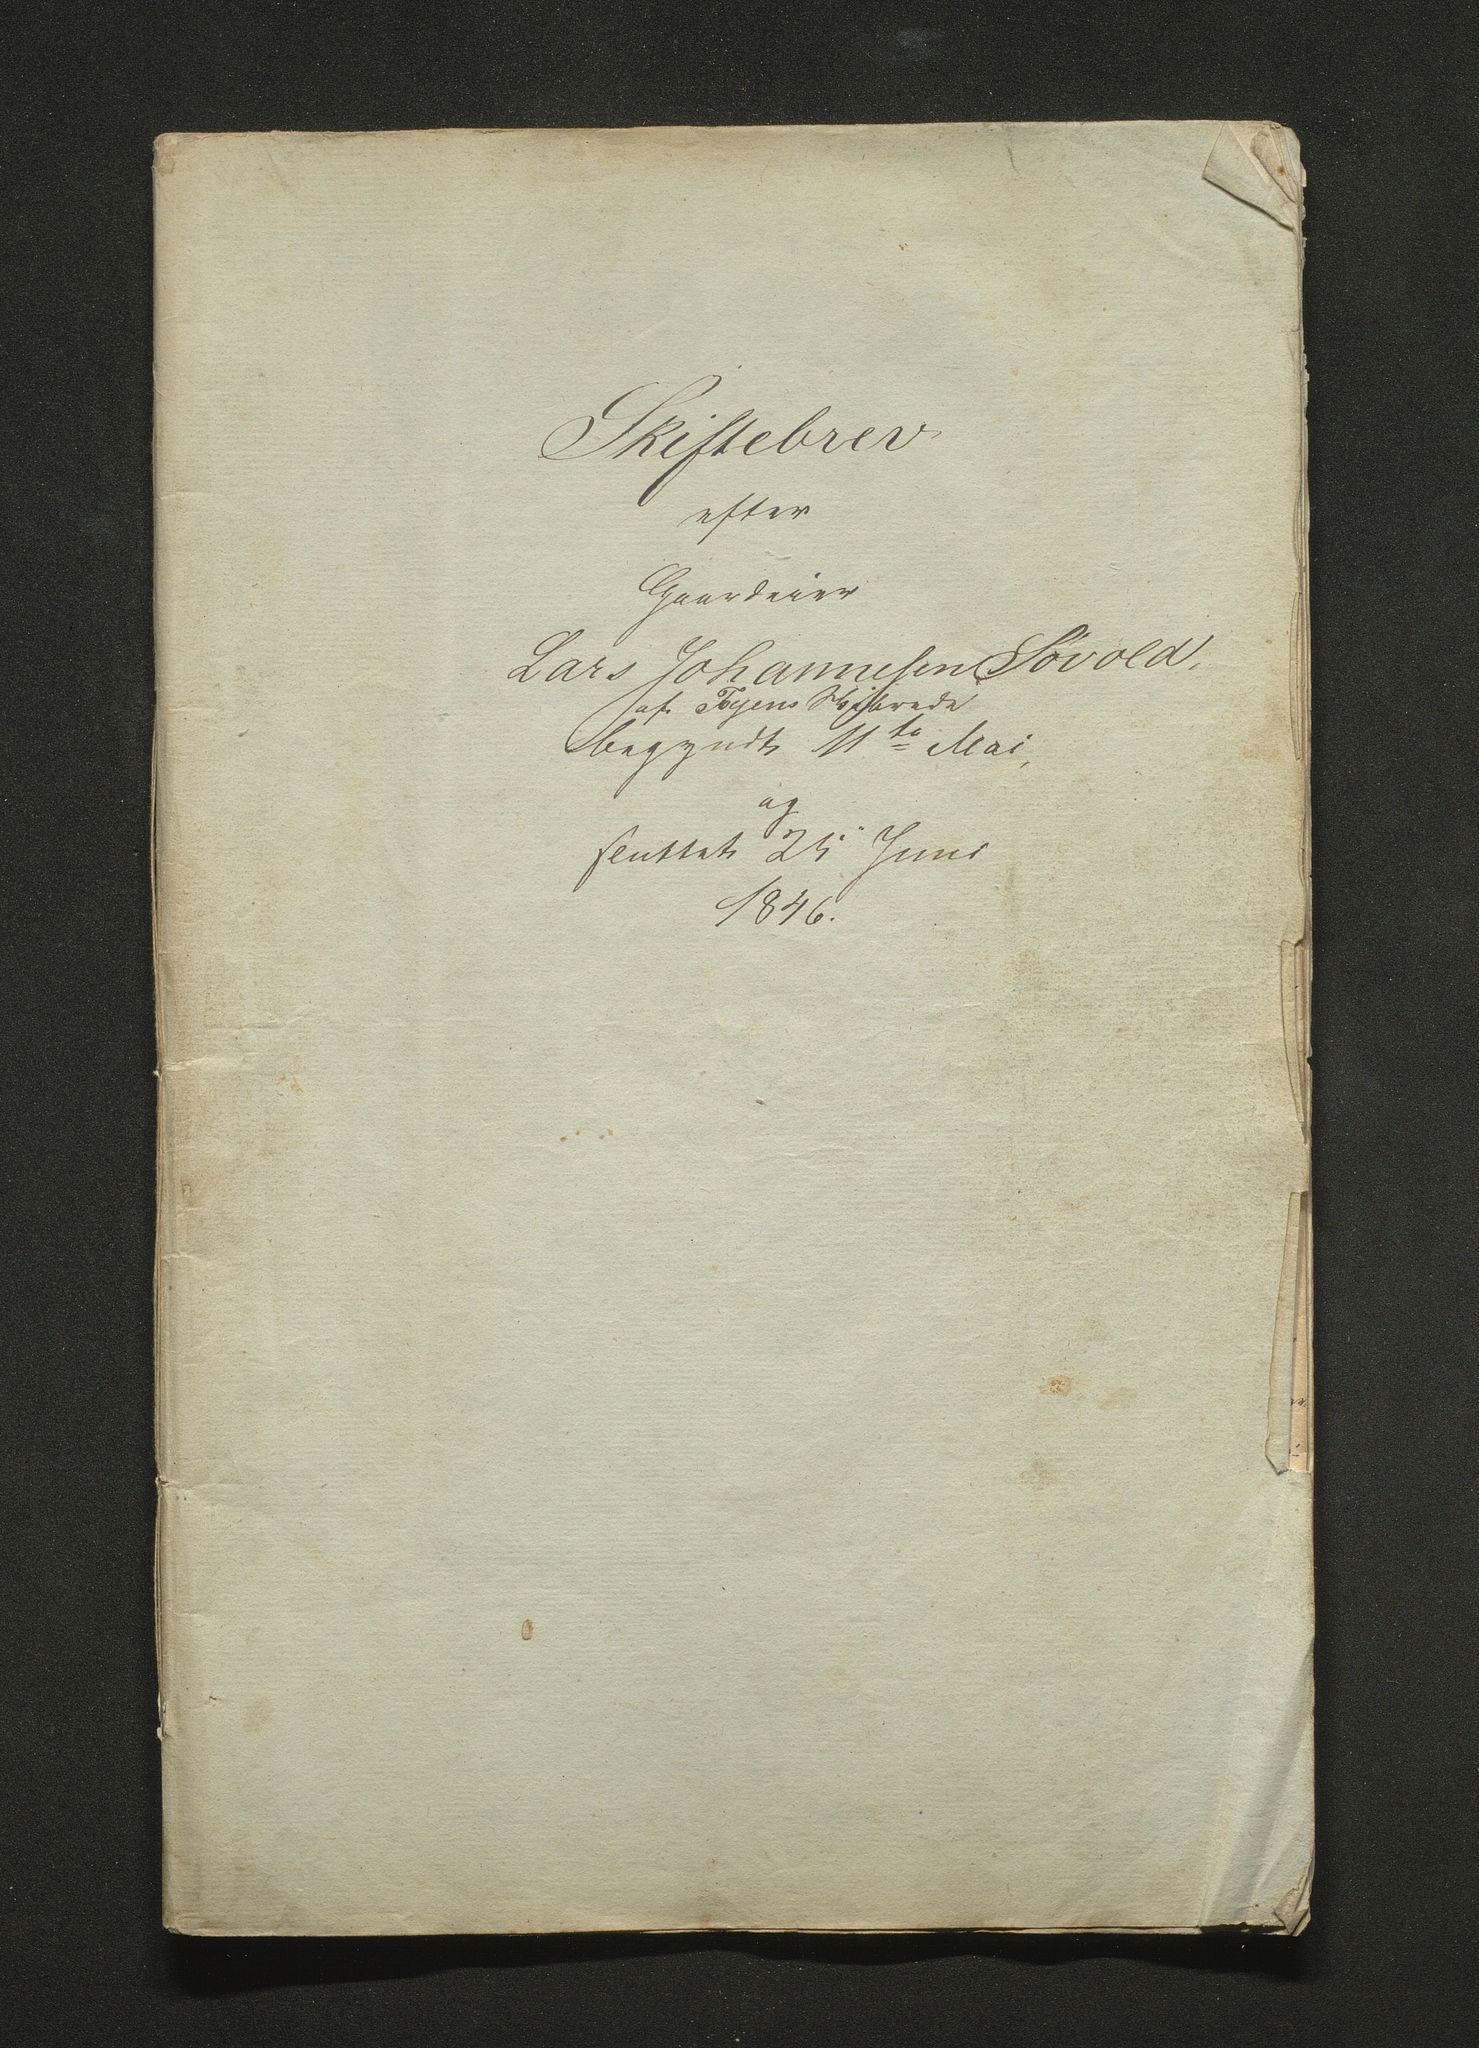 Skiftebrev
efter
Gaardeier
Lars Johannesen Søvold,
af Fyens Skibrede
begyndt 11te Mai,
og
sluttet 25 Juni
1846.